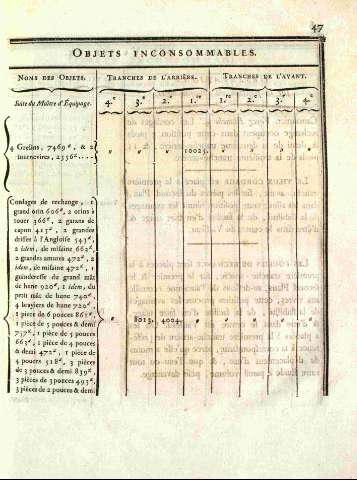 47
OBJETS INCONSOMMABLES.
NOMS DES OBJETS. TRANCHES DE L'ARRIÈRE. TRANCHES DE L'AVANT.
Suite du Maître d'Équipage. 4.e 3.e 2.e 1.re 1.re 2.e 3.e 4.e
4 Grelins, 7469 ᵈ, & 2 " " " 10025. " " " "
tournevires, 2556
Cordages de rechange, 1
grand orin 606 ᵈ, 2 orins à
touer 366 ᵈ, 2 garans de
capon 415 ᵈ, 2 grandes
drisses à l'Angloise 543 ᵈ,
2 idem, de misaine 662 ᵈ,
2 grandes amures 472 ᵈ, 2
idem, de misaine 472 ᵈ, 1
guinderesse du grand mât
de hune 920 ᵈ, 1 idem, du
petit mâte de hune 740 ᵈ,
4 itagues de hune 720 ᵈ,
1 pièce de 6 pouces 865 ᵈ, " 8013. 4004. " " " " "
1 pièce de 5 pouces & demi
757 ᵈ, 1 pièce de 5 pouces
663 ᵈ, 1 pièce de 4 pouces
& demi 472 ᵈ, 1 pièce de
4 pouces 518 ᵈ, 3 pièces
de 3 pouces & demi 839 ᵈ,
3 pièces de 3 pouces 493 ᵈ,
3 pièces de 2 pouces & demi